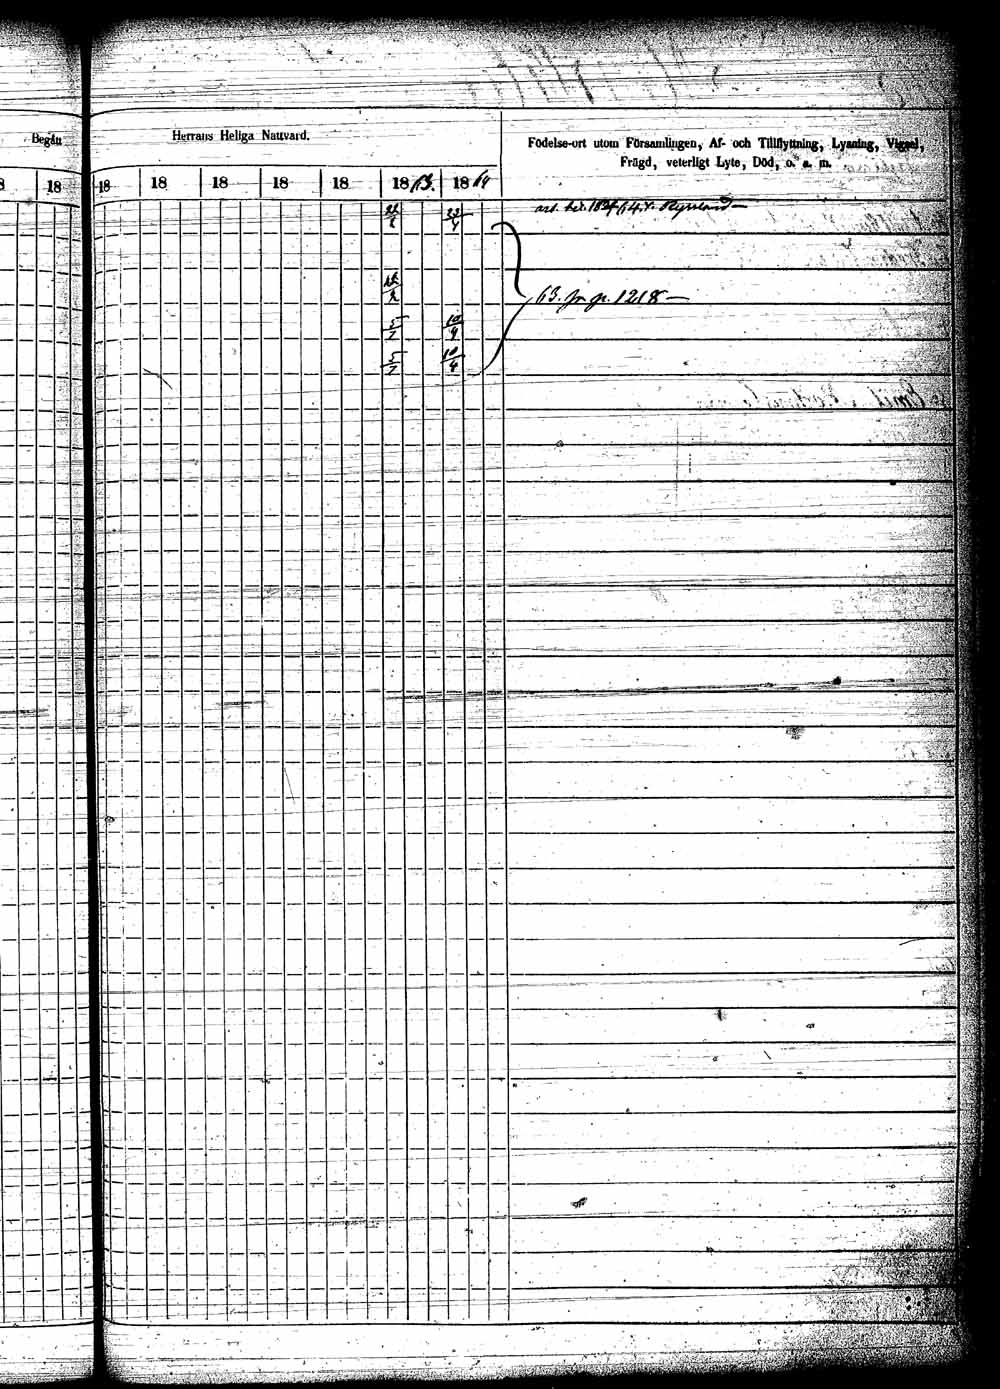 Begått
Herrans Heliga Nattvard.
Födelse-ort utom Församlingen, Af- och Tillflyttning, Lysning, Vigsel,
Frägd, veterligt Lyte, Död, o. a. m.
18 18 18 18 18 18 1863. 1864
22/2 22/4
Ryssland —
22/2
63. fr. p. 1218 —
5/7 10/4
5/7 10/4